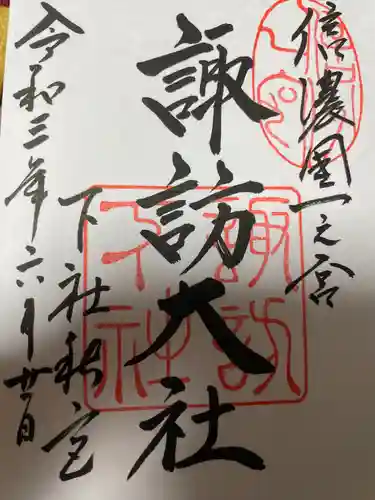 信濃國一之宮
諏訪大社
下社秋宮
令和三年六月廿一日
諏訪
下社